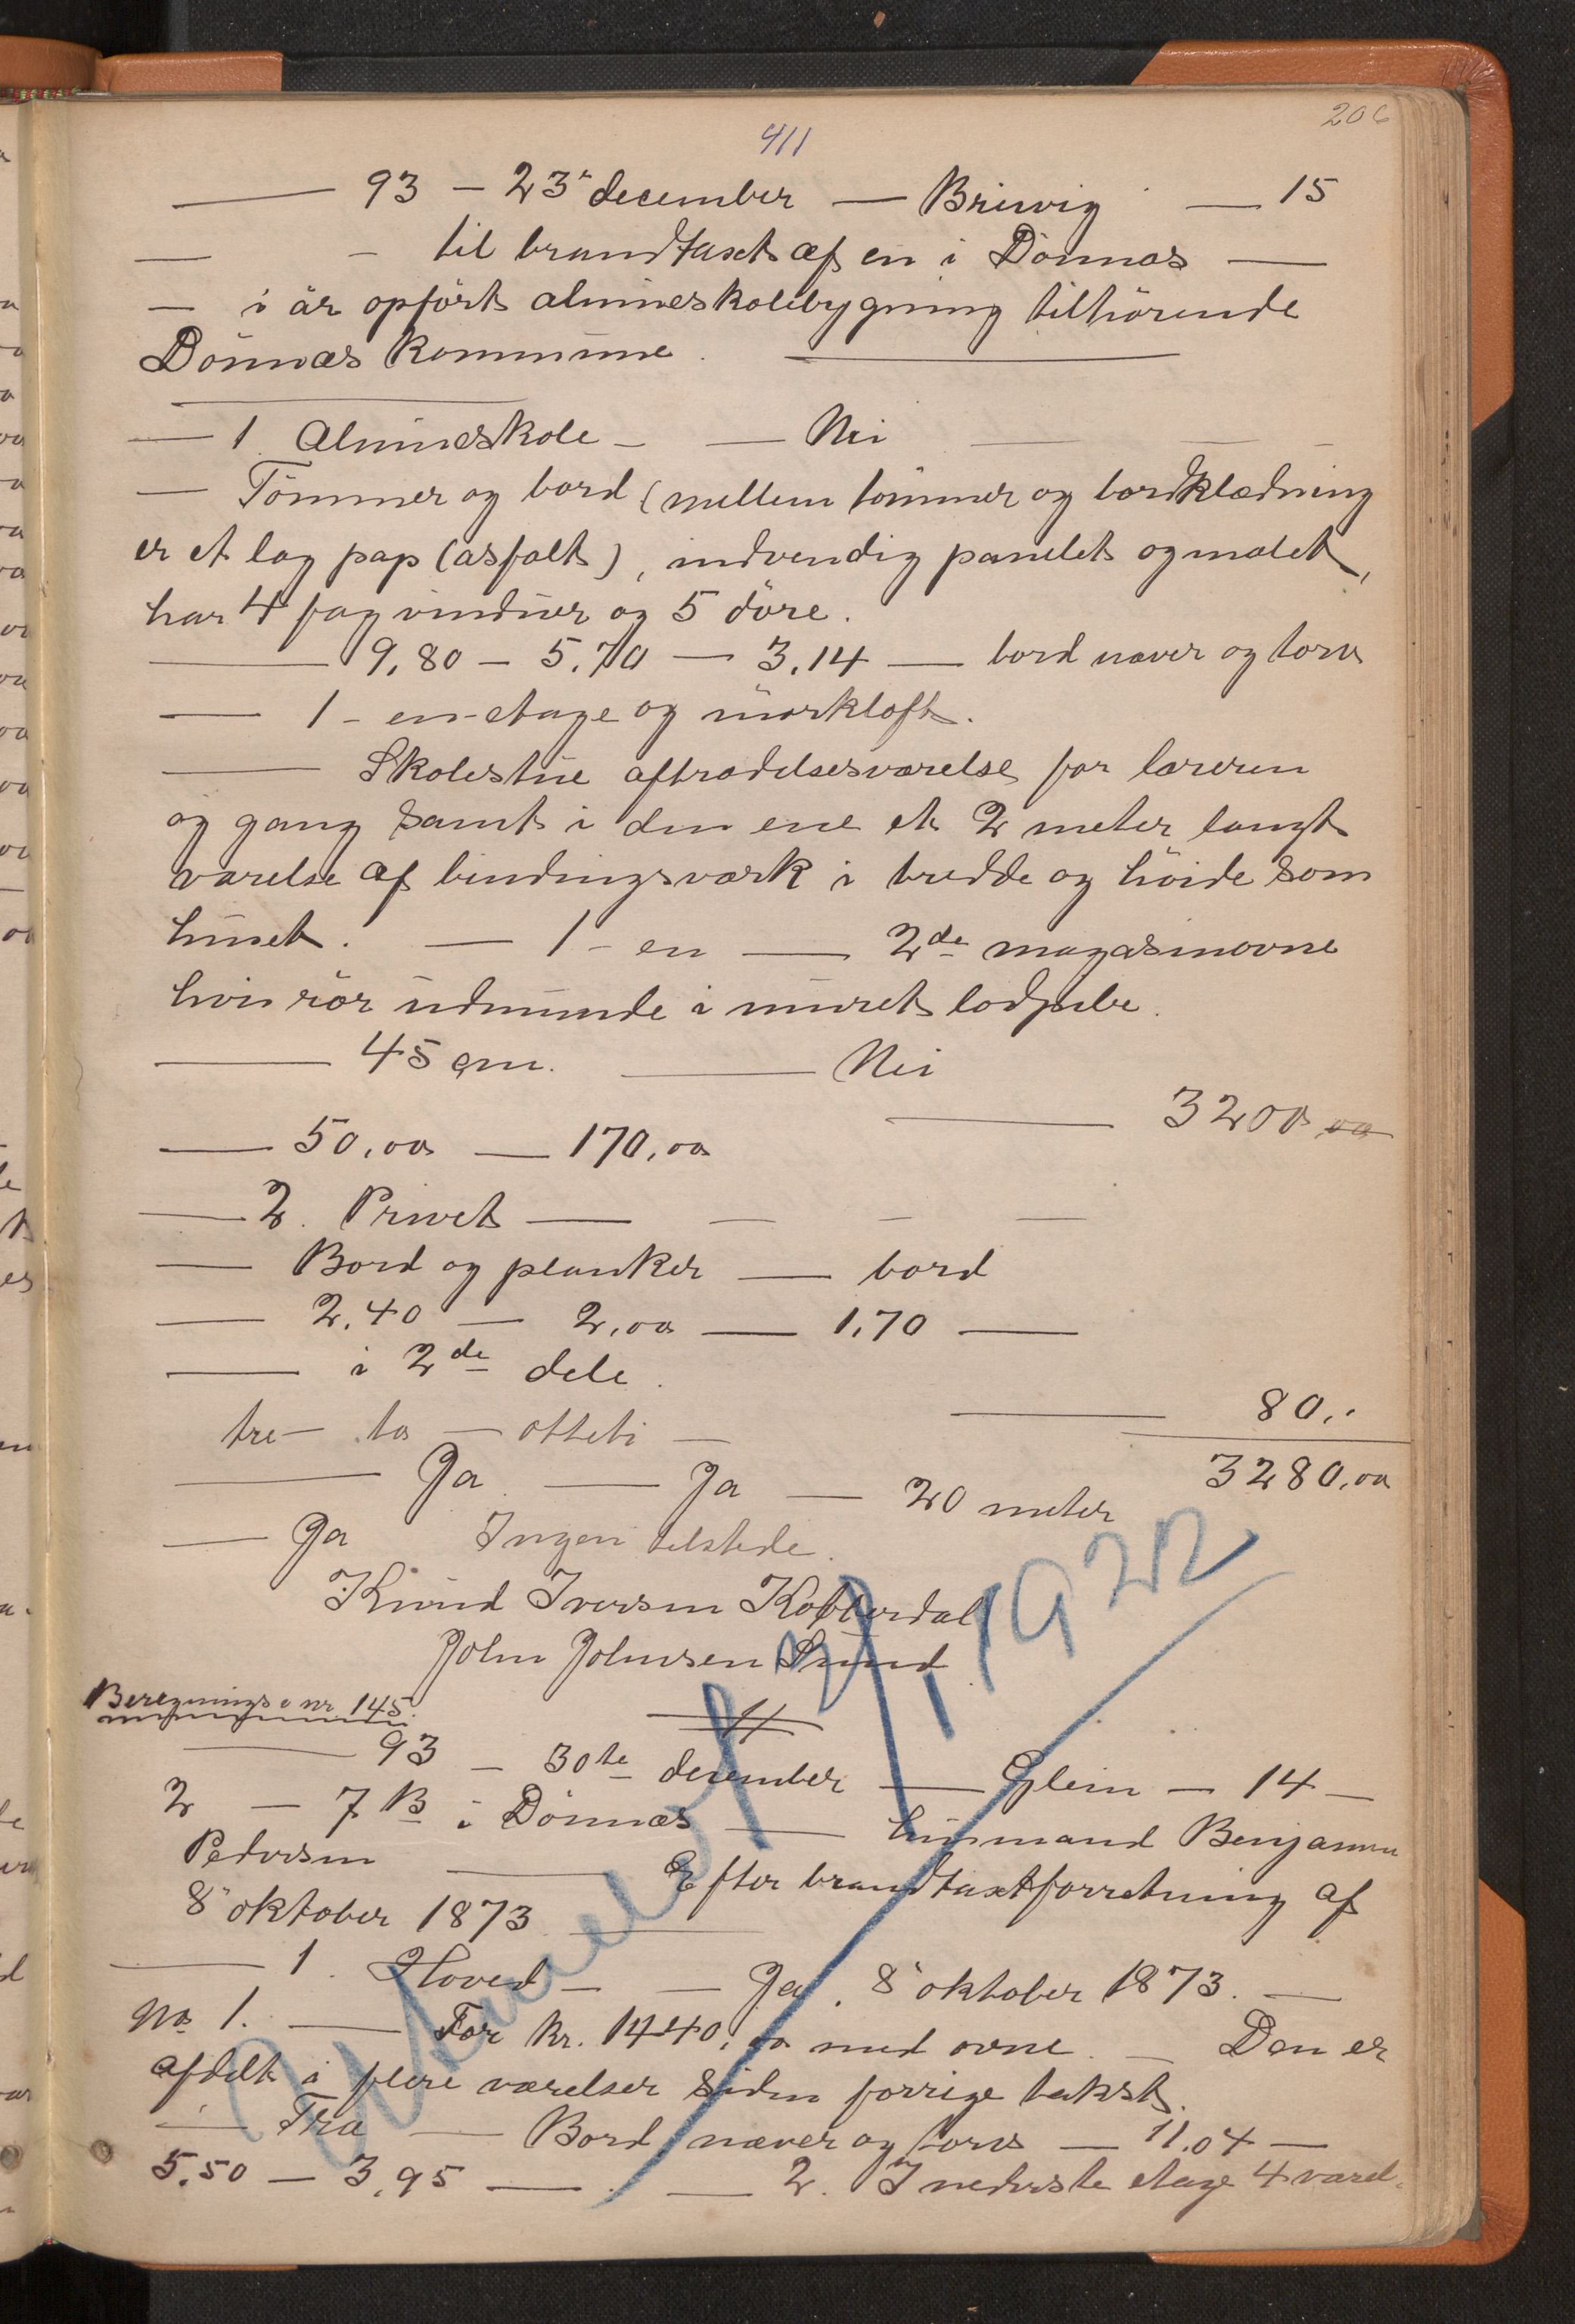 206
411
— 93 – 23' december — Breivig — 15
— – til brandtaxt af en i Dönnæs —
— i år opfört almueskolebygning tilhörende
Dönnæs kommune. —
— 1. Almueskole – — Nei — — –
— Tömmer og bord (mellem tömmer og bordklædning
er et lag pap (asfalt), indvendig panelet og malet,
har 4 fag vinduer og 5 döre.
— 9,80 – 5,70 — 3,14 — bord næver og torv
— 1 – en – etage og mörkloft.
— Skolestue aftrædelsesværelse for læreren
og gang samt i den ene et 2 meter langt
værelse af bindingsværk i bredde og höide som
huset. — 1 – en — 2de magasinovne
hvis rör udmunde i muret lodpibe.
— 45 cm. — Nei
— 3200 oo
— 50,oo — 170,oo
— 2. Privet — — – —
— Bord og planker — bord
— 2,40 — 2,oo — 1,70 —
— i 2de dele.
— 80,.
tre – to – otteti –
3280,oo
— Ja. — Ja — 20 meter
— Ja Ingen tilstede.
Knud Iversen Kobberdal
John Johnsen Sund
1922
Beregnings nr 145.
— 93 – 30te december — Glein – 14 –
2 – 7 B i Dönnæs — husmand Benjamin
Pedersen — Efter brandtaxtforretning af
8' oktober 1873 —
— 1. Hoved – — Ja. 8' oktober 1873. —
No 1. — For kr. 1440,oo med ovne. — Den er
afdelt i flere værelser siden forrige takst.
— Træ — Bord næver og torv — 11.04 —
5.50 – 3,95 — — 2. I nederste etage 4 værel-